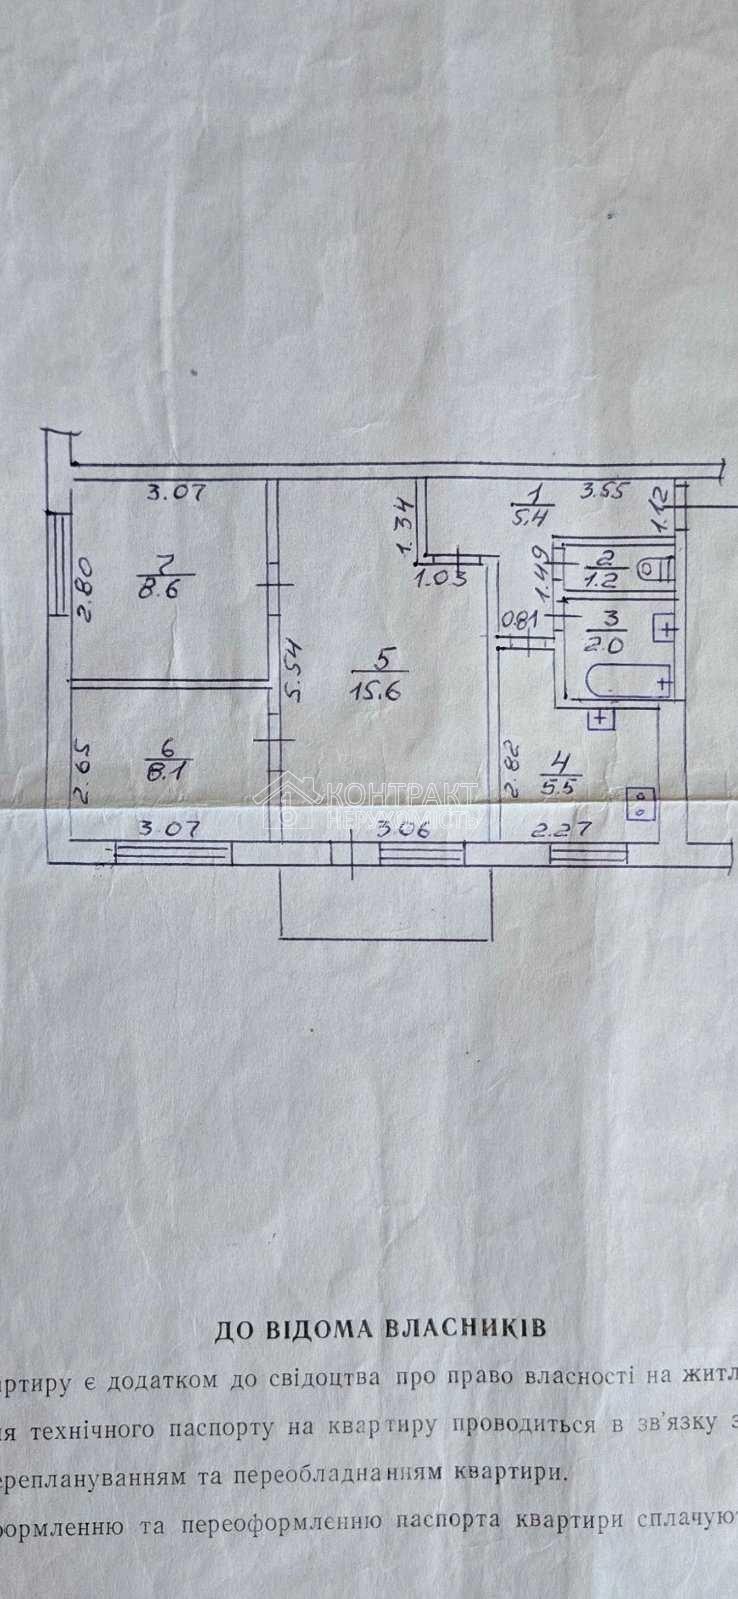 3.07
1
5.4
3.55
1.12
1.34
7
8.6
2.80
1.03
1.49
2
1.2
0.81
3
2.0
5.54
5
15.6
6
8.1
2.65
2.82
4
5.5
КОНТРАКТ
НЕРУХОМІСТЬ
3.07
3.06
2.27
ДО ВІДОМА ВЛАСНИКІВ
є додатком до свідоцтва про право власності на
технічного паспорту на квартиру проводиться в зв'язку з
та переобладнанням квартири.
та переоформленню паспорта квартири